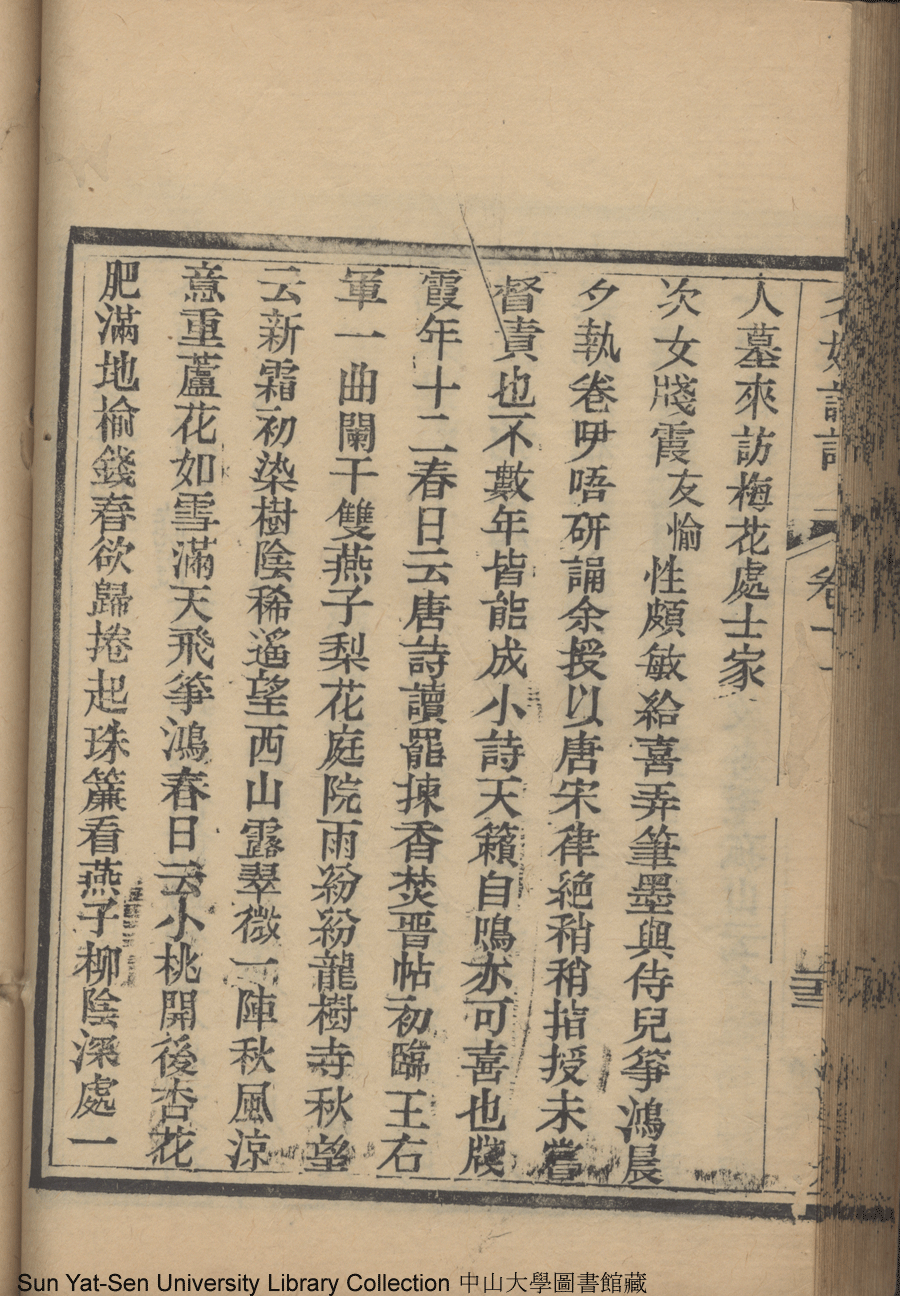 名媛詩話 卷十一
人墓來訪梅花處士家
次女牋霞友愉性頗敏給喜弄筆墨與侍兒箏鴻晨
夕執卷吚唔研誦余授以唐宋律絕稍稍指授未嘗
督責也不數年皆能成小詩天籟自鳴亦可喜也牋
霞年十二春日云唐詩讀罷揀香焚晋帖初臨王右
軍一曲闌干雙燕子梨花庭院雨紛紛龍樹寺秋望
云新霜初染樹陰稀遙望西山露翠微一陣秋風涼
意重蘆花如雪滿天飛箏鴻春日云小桃開後杏花
肥滿地榆錢春欲歸捲起珠簾看燕子柳陰深處一
Sun Yat-Sen University Library Collection 中山大學圖書館藏